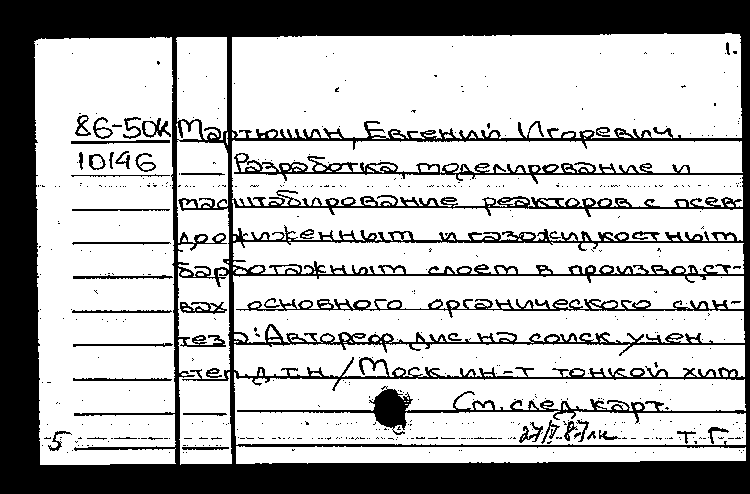 1.
86-50к Мартюшин, Евгений Игоревич.
10146 Разработка, моделирование и
масштабирование реакторов с псев-
доожиженным и газожидкостным
барботажным слоем в производст-
вах основного органического син-
теза: Автореф. дис. на соиск. учен.
степ. д.т.н. / Моск. ин-т тонкой хим.
См. след. карт.
5 Т. Г.